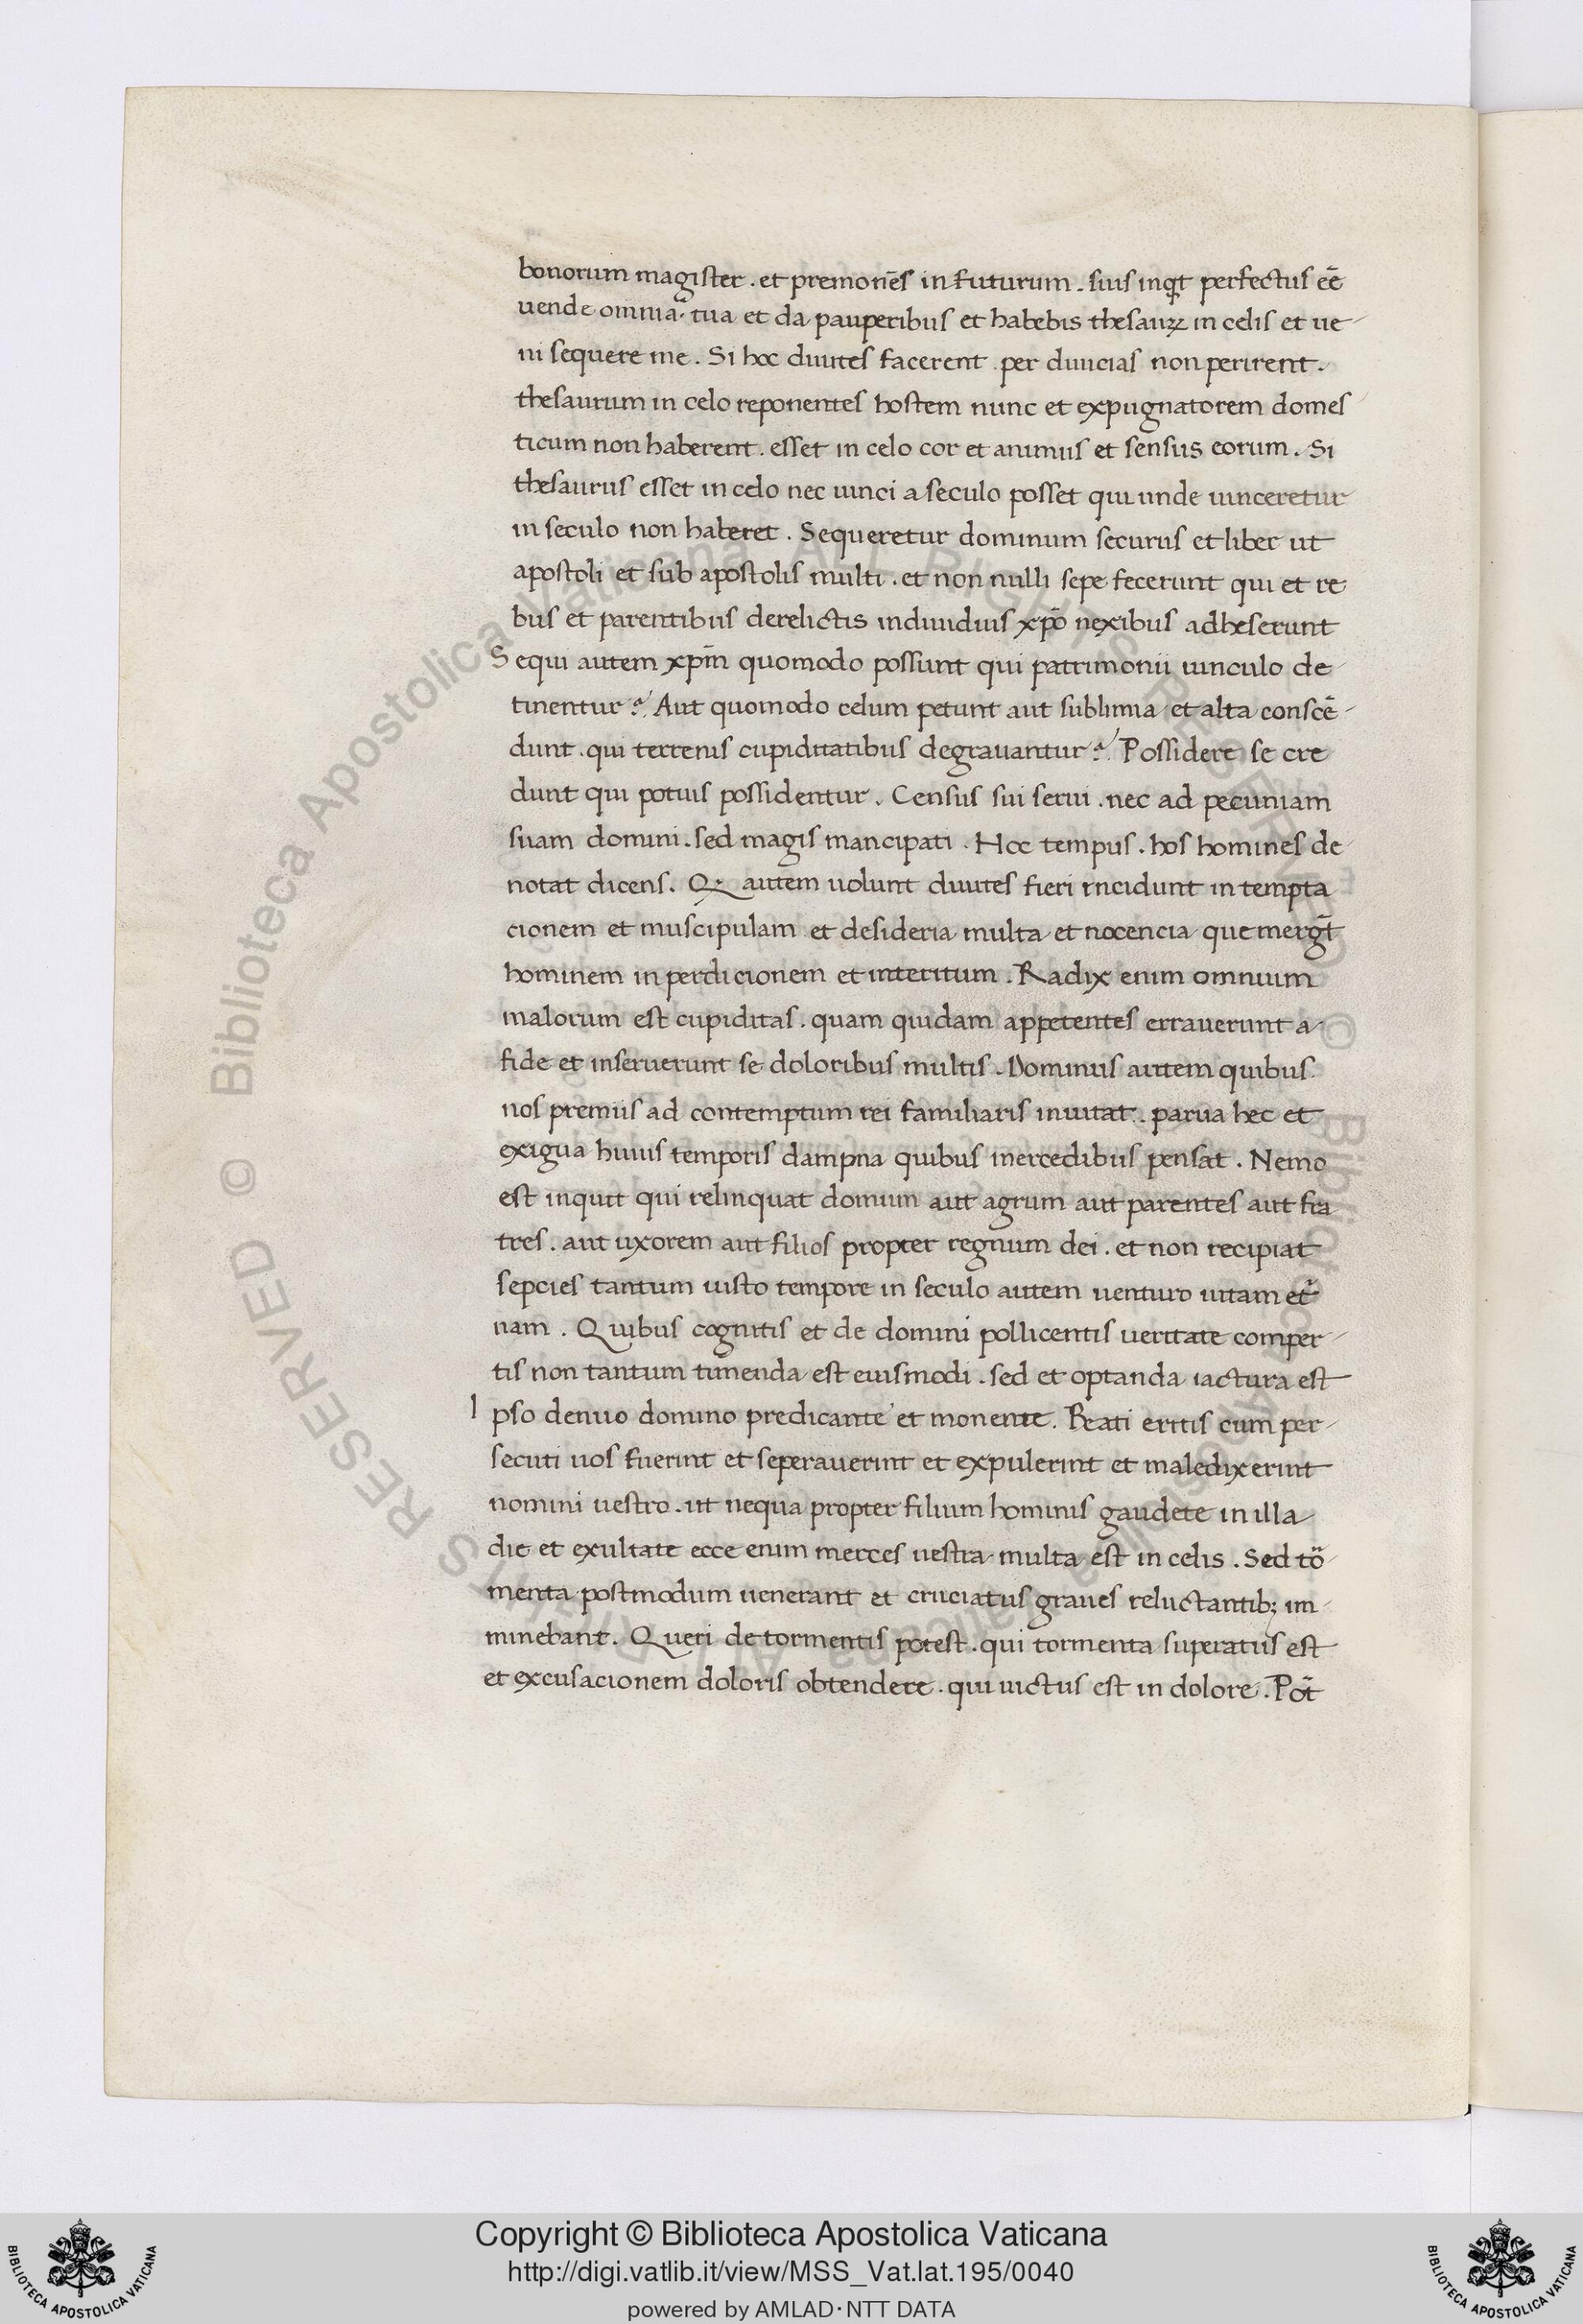 bonorum magister . et premonēs in futurum . siuis inqͥt perfectus eē
uende omnia tua et da pauperibus et habebis thesauꝝ in celis et ue-
ni sequere me . Si hoc diuites facerent . per diuicias non perirent .
thesaurum in celo reponentes hostem nunc et expugnatorem domes-
ticum non haberent . esset in celo cor et animus et sensus eorum . Si
thesaurus esset in celo nec uinci a seculo posset qui unde uinceretur
in seculo non haberet . Sequeretur dominum securus et liber ut
apostoli et sub apostolis multi . et non nulli sepe fecerunt qui et re
bus et parentibus derelictis indiuiduis xp̄o nexibus adheserunt
Sequi autem xp̄m quomodo possunt qui patrimonii uinculo de-
tinentur ? Aut quomodo celum petunt aut sublimia et alta conscē-
dunt . qui terrenis cupiditatibus degrauantur ? Possidere se cre
dunt qui potius possidentur . Census sui serui . nec ad pecuniam
suam domini . sed magis mancipati . Hoc tempus . hos homines de-
notat dicens . Qͥ autem uolunt diuites fieri incidunt in tempta
cionem et muscipulam et desideria multa et nocencia que merg̃t
hominem in perdicionem et interitum . Radix enim omnium
malorum est cupiditas . quam quidam appetentes errauerunt a
fide et inseruerunt se doloribus multis . Dominus autem quibus
nos premiis ad contemptum rei familiaris inuitat . parua hec et
exigua huius temporis dampna quibus mercedibus pensat . Nemo
est inquit qui relinquat domum aut agrum aut parentes aut fra
tres . aut uxorem aut filios propter regnum dei . et non recipiat
sepcies tantum inisto tempore in seculo autem uenturo uitam et̾
nam . Quibus cognitis et de domini pollicentis ueritate comper-
tis non tantum timenda est eiusmodi . sed et optanda iactura est
Ipso denuo domino predicante et monente . Beati eritis cum per-
secuti uos fuerint et seperauerint et expulerint et maledixerint
nomini uestro . ut nequa propter filium hominis gaudete in illa
die et exultate ecce enim merces uestra multa est in celis . Sed to᷑-
menta postmodum uenerant et cruciatus graues reluctantib; im-
minebant . Queri de tormentis potest . qui tormenta superatus est
et excusacionem doloris obtendere . qui uictus est in dolore . Pot̄
© Biblioteca Apostolica Vaticana ALL RIGHTS RESERVED © Biblioteca Apostolica Vaticana ALL RIGHTS RESERVED
Copyright © Biblioteca Apostolica Vaticana
http://digi.vatlib.it/view/MSS_Vat.lat.195/0040
powered by AMLAD·NTT DATA
BIBLIOTECA APOSTOLICA VATICANA
BIBLIOTECA APOSTOLICA VATICANA